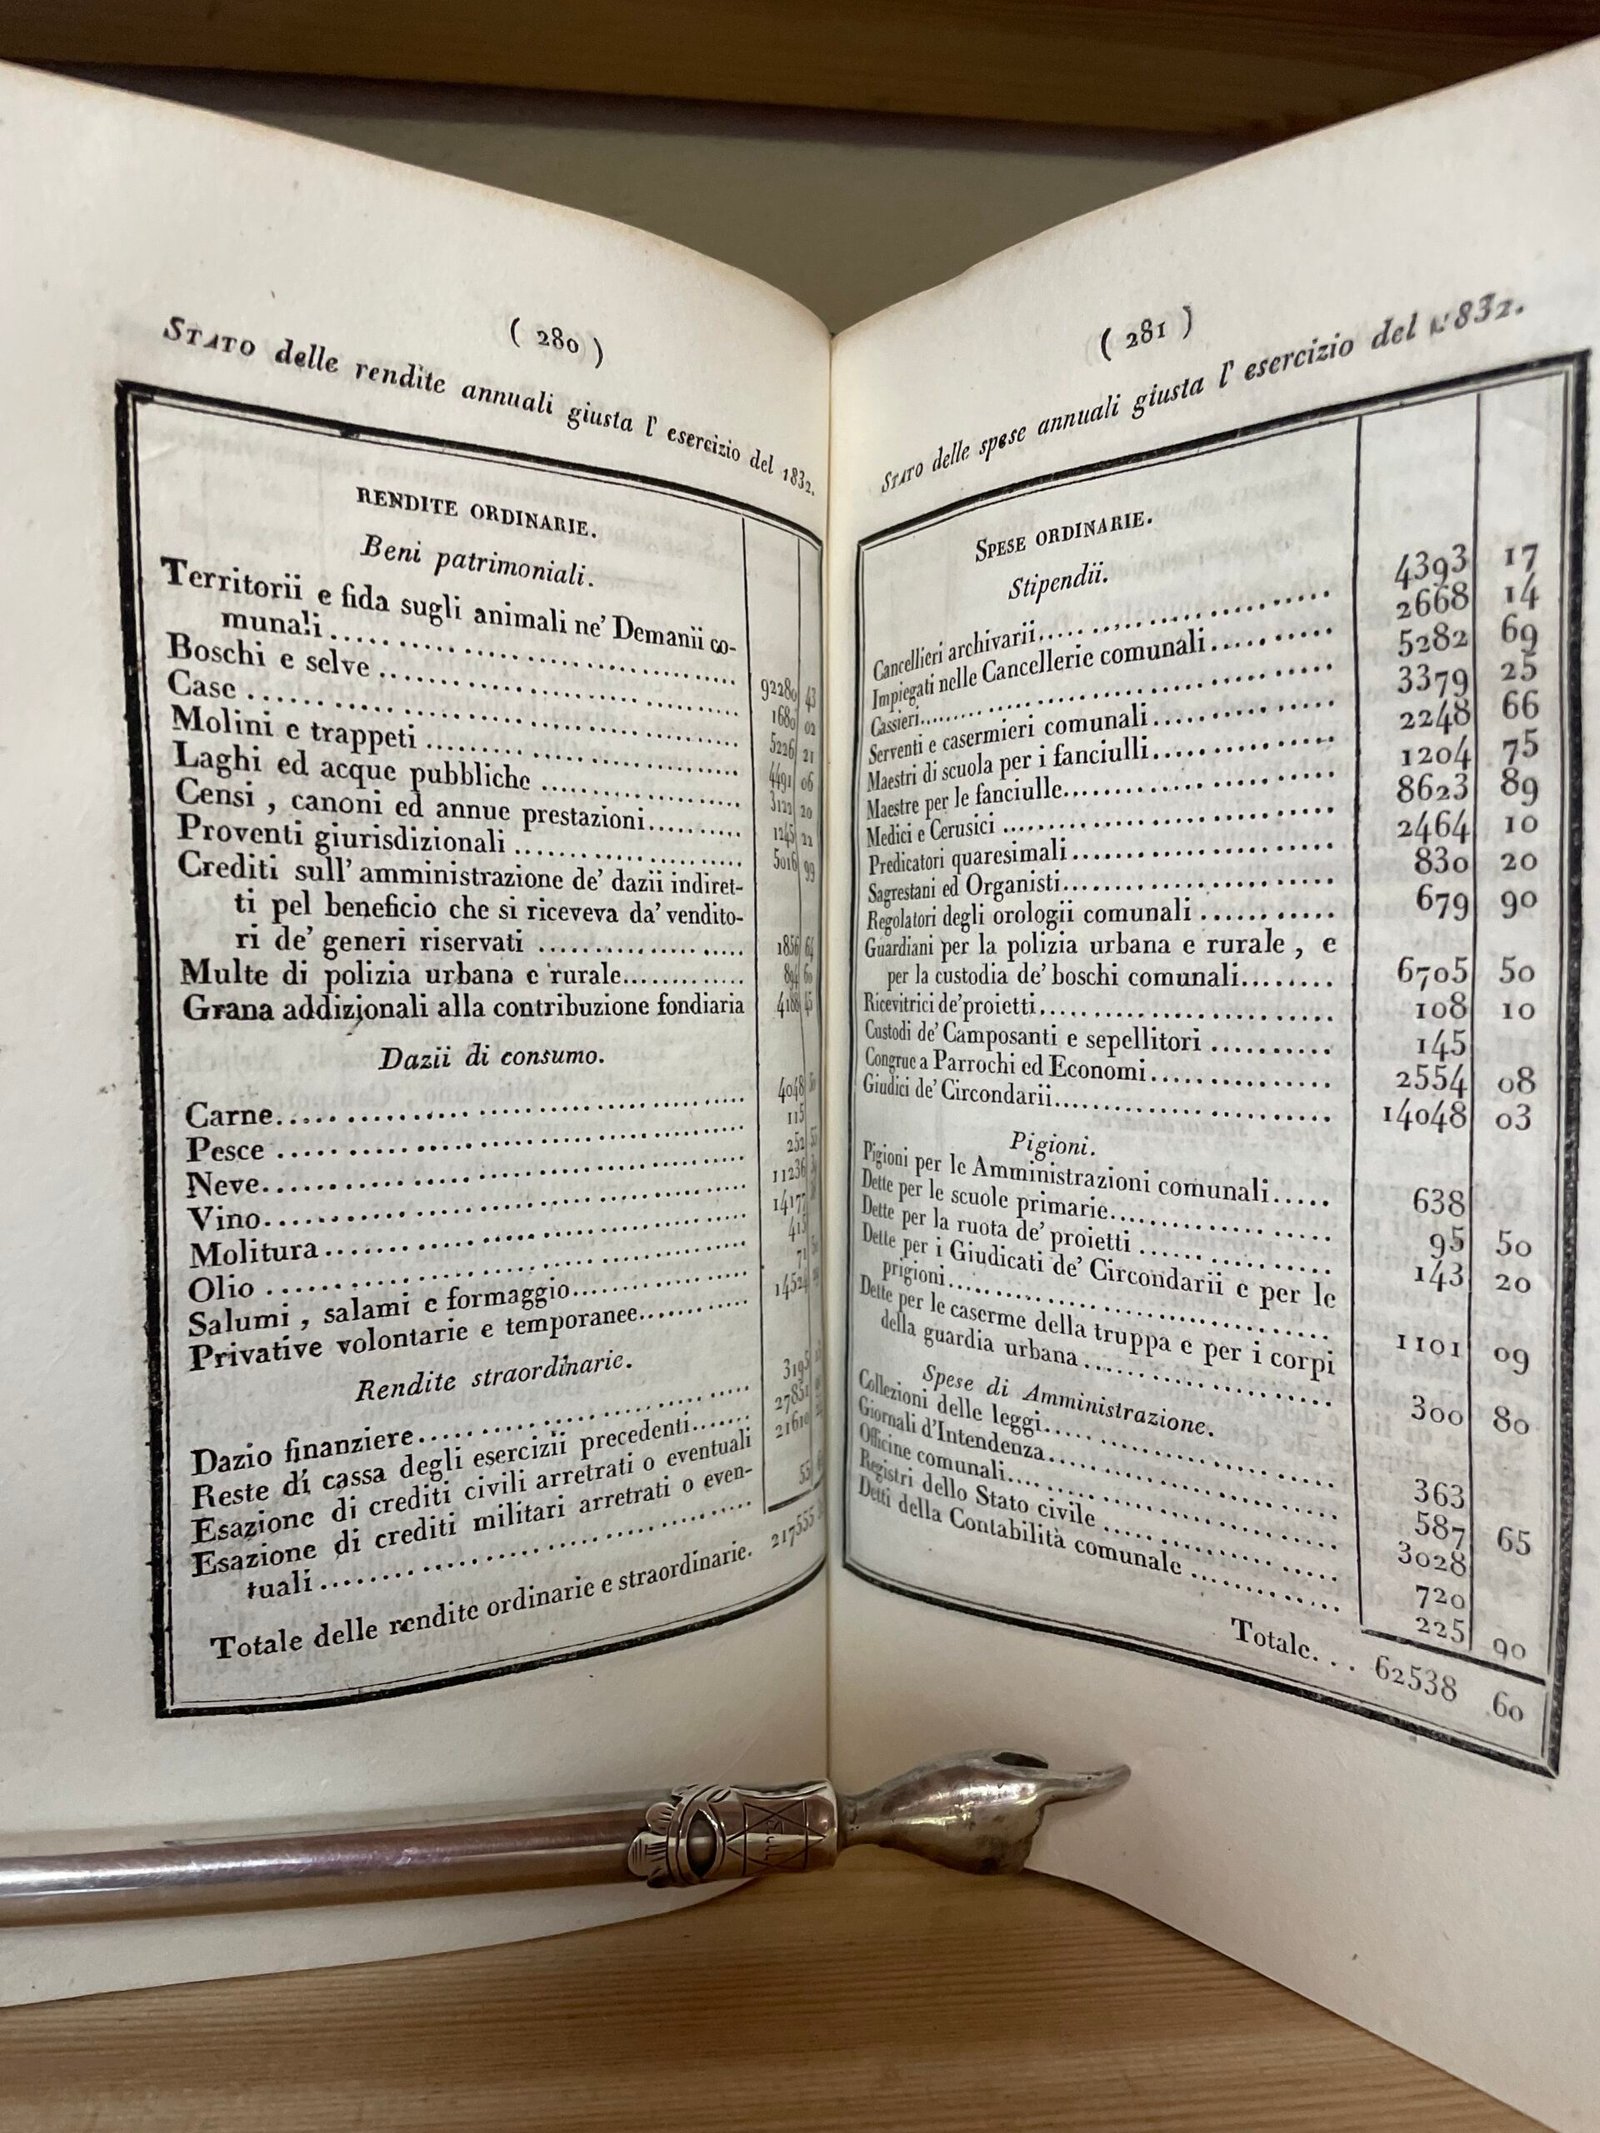 ( 280 )
STATO delle rendite annuali giusta l' esercizio del 1832.
RENDITE ORDINARIE.
Beni patrimoniali.
Territorii e fida sugli animali ne' Demanii co-
munali........ 92280 43
Boschi e selve........ 1680 02
Case........ 5226 21
Molini e trappeti........ 4491 06
Laghi ed acque pubbliche........ 3122 20
Censi , canoni ed annue prestazioni........ 1245 22
Proventi giurisdizionali........ 5016 99
Crediti sull' amministrazione de' dazii indiret-
ti pel beneficio che si riceveva da' vendito-
ri de' generi riservati........ 1856 64
Multe di polizia urbana e rurale........ 894 60
Grana addizionali alla contribuzione fondiaria 4188 45
Dazii di consumo.
Carne........ 4048
Pesce........ 115
Neve........ 252
Vino........ 11236
Molitura........ 14177
Olio........ 413
Salumi , salami e formaggio........ 71
Privative volontarie e temporanee........ 14524
Rendite straordinarie.
Dazio finanziere........ 3195
Reste di cassa degli esercizii precedenti........ 27851
Esazione di crediti civili arretrati o eventuali 21610
Esazione di crediti militari arretrati o even-
tuali........ 55
Totale delle rendite ordinarie e straordinarie. 217555
( 281 )
STATO delle spese annuali giusta l' esercizio del 1832.
SPESE ORDINARIE.
Stipendii.
Cancellieri archivarii........ 4393 17
Impiegati nelle Cancellerie comunali........ 2668 14
Cassieri........ 5282 69
Serventi e casermieri comunali........ 3379 25
Maestri di scuola per i fanciulli........ 2248 66
Maestre per le fanciulle........ 1204 75
Medici e Cerusici........ 8623 89
Predicatori quaresimali........ 2464 10
Sagrestani ed Organisti........ 830 20
Regolatori degli orologii comunali........ 679 90
Guardiani per la polizia urbana e rurale , e
per la custodia de' boschi comunali........ 6705 50
Ricevitrici de' proietti........ 108 10
Custodi de' Camposanti e sepellitori........ 145
Congrue a Parrochi ed Economi........ 2554 08
Giudici de' Circondarii........ 14048 03
Pigioni.
Pigioni per le Amministrazioni comunali..... 638
Dette per le scuole primarie........ 95 50
Dette per la ruota de' proietti........ 143 20
Dette per i Giudicati de' Circondarii e per le
prigioni........ 1101 09
Dette per le caserme della truppa e per i corpi
della guardia urbana........ 300 80
Spese di Amministrazione.
Collezioni delle leggi........ 363
Giornali d'Intendenza........ 587 65
Officine comunali........ 3028
Registri dello Stato civile........ 720
Detti della Contabilità comunale........ 225 90
Totale... 62538 60